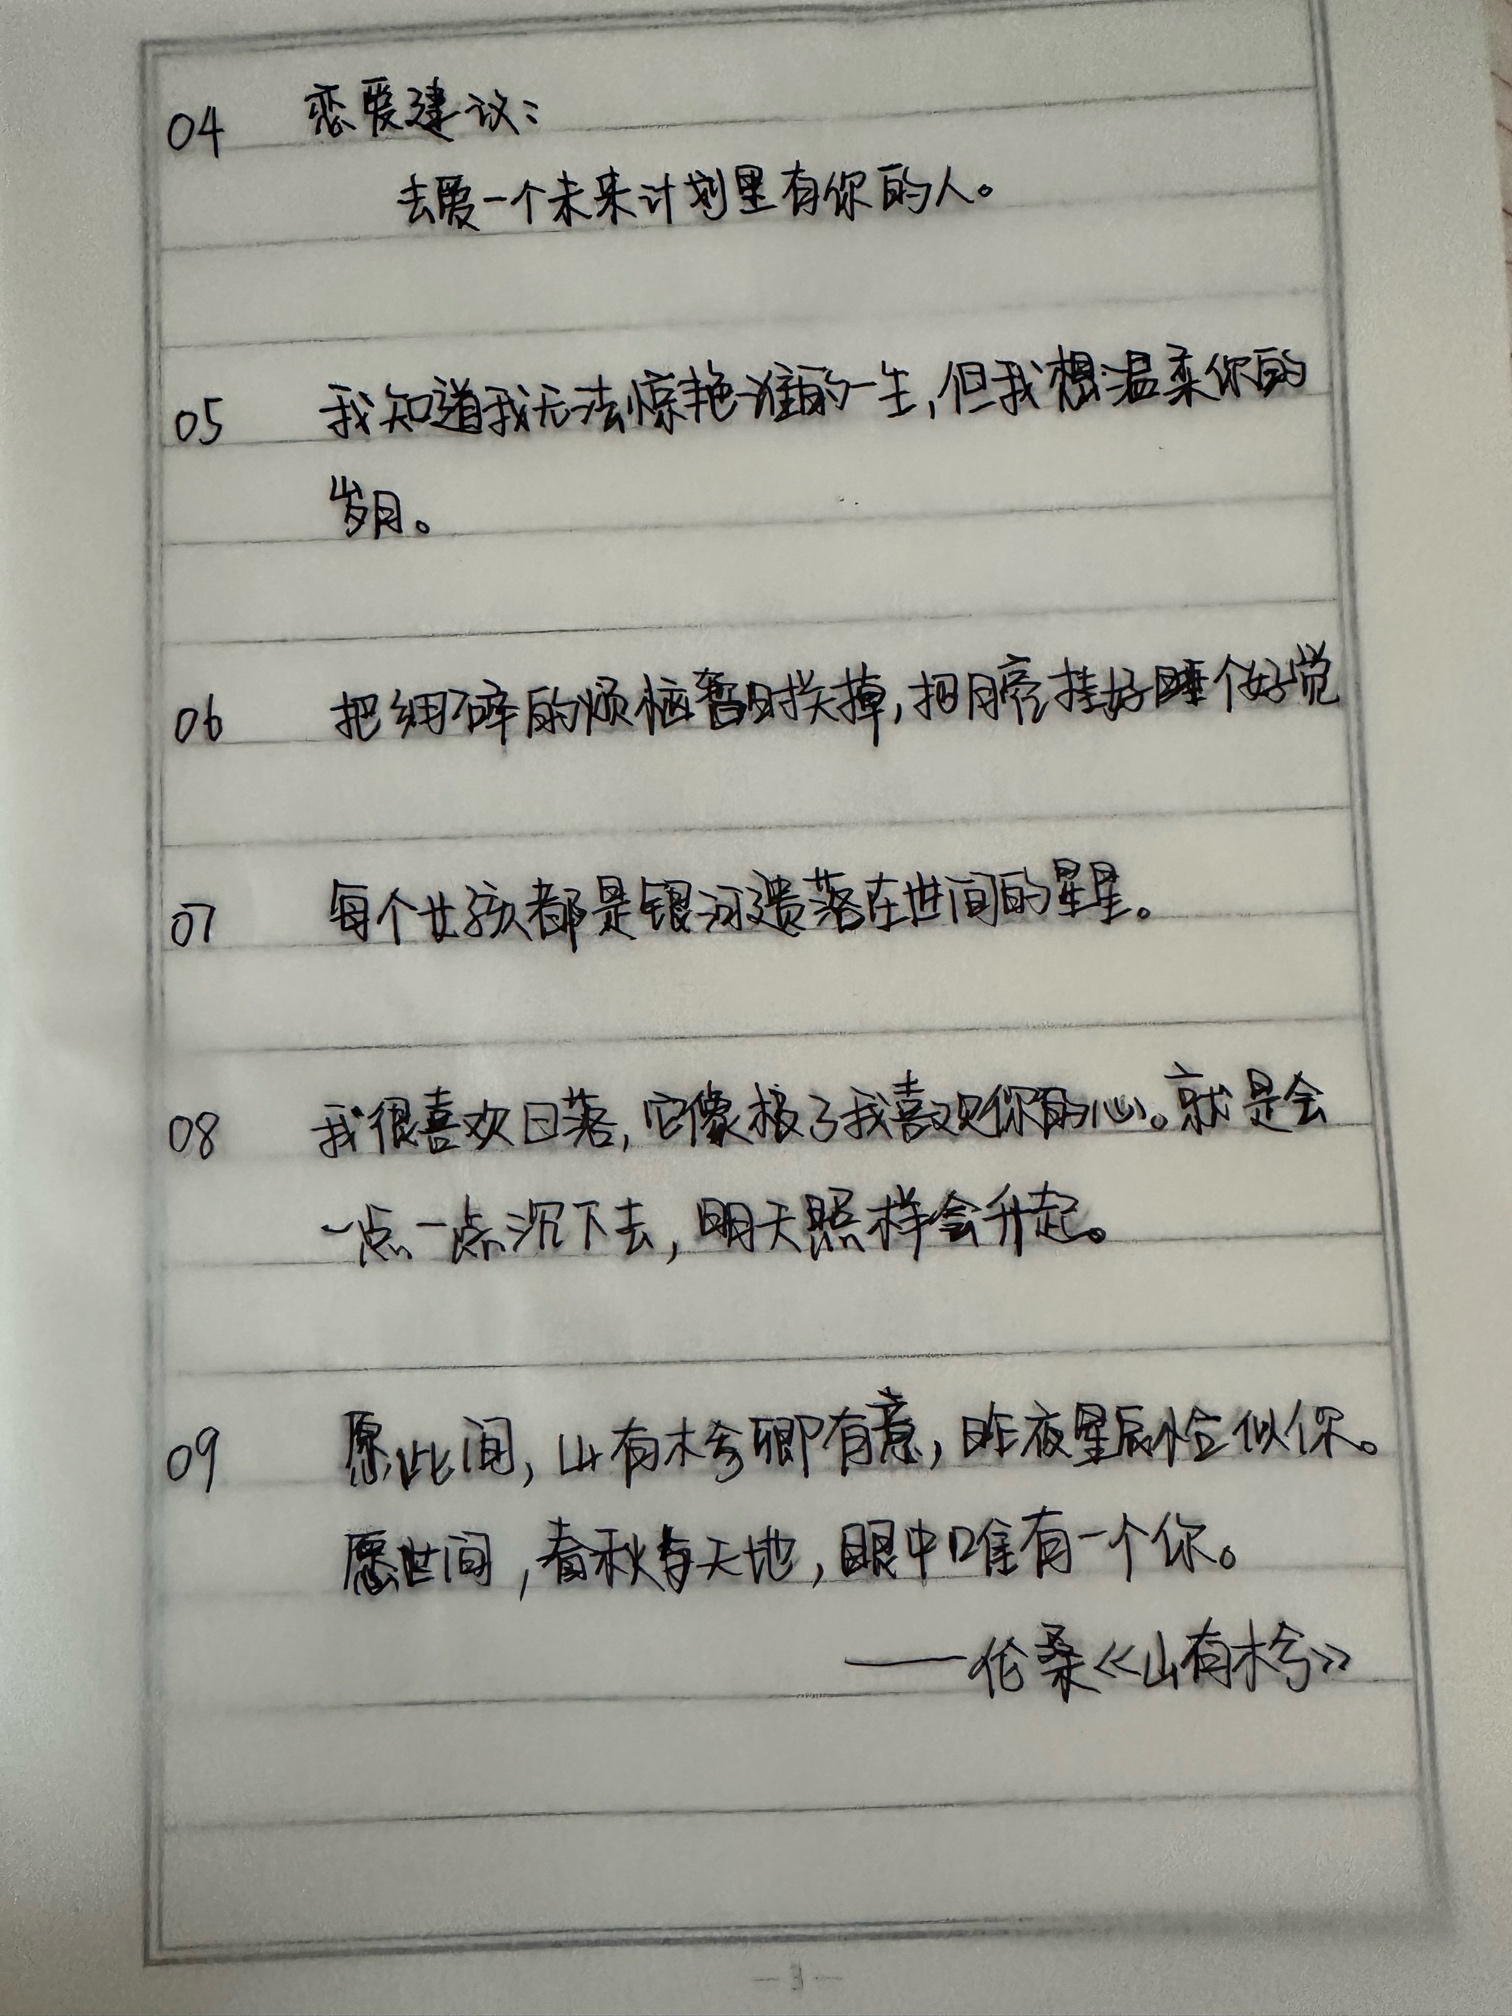 04 恋爱建议：
去爱一个未来计划里有你的人。
05 我知道我无法惊艳谁的一生，但我想温柔你的
岁月。
06 把细碎的烦恼暂时关掉，把月亮挂好睡个好觉
07 每个女孩都是银河遗落在世间的星星。
08 我很喜欢日落，它像极了我喜欢你的心。就是会
一点一点沉下去，明天照样会升起。
09 愿此间，山有木兮卿有意，昨夜星辰恰似你。
愿世间，春秋与天地，眼中唯有一个你。
——伦桑《山有木兮》
— 3 —